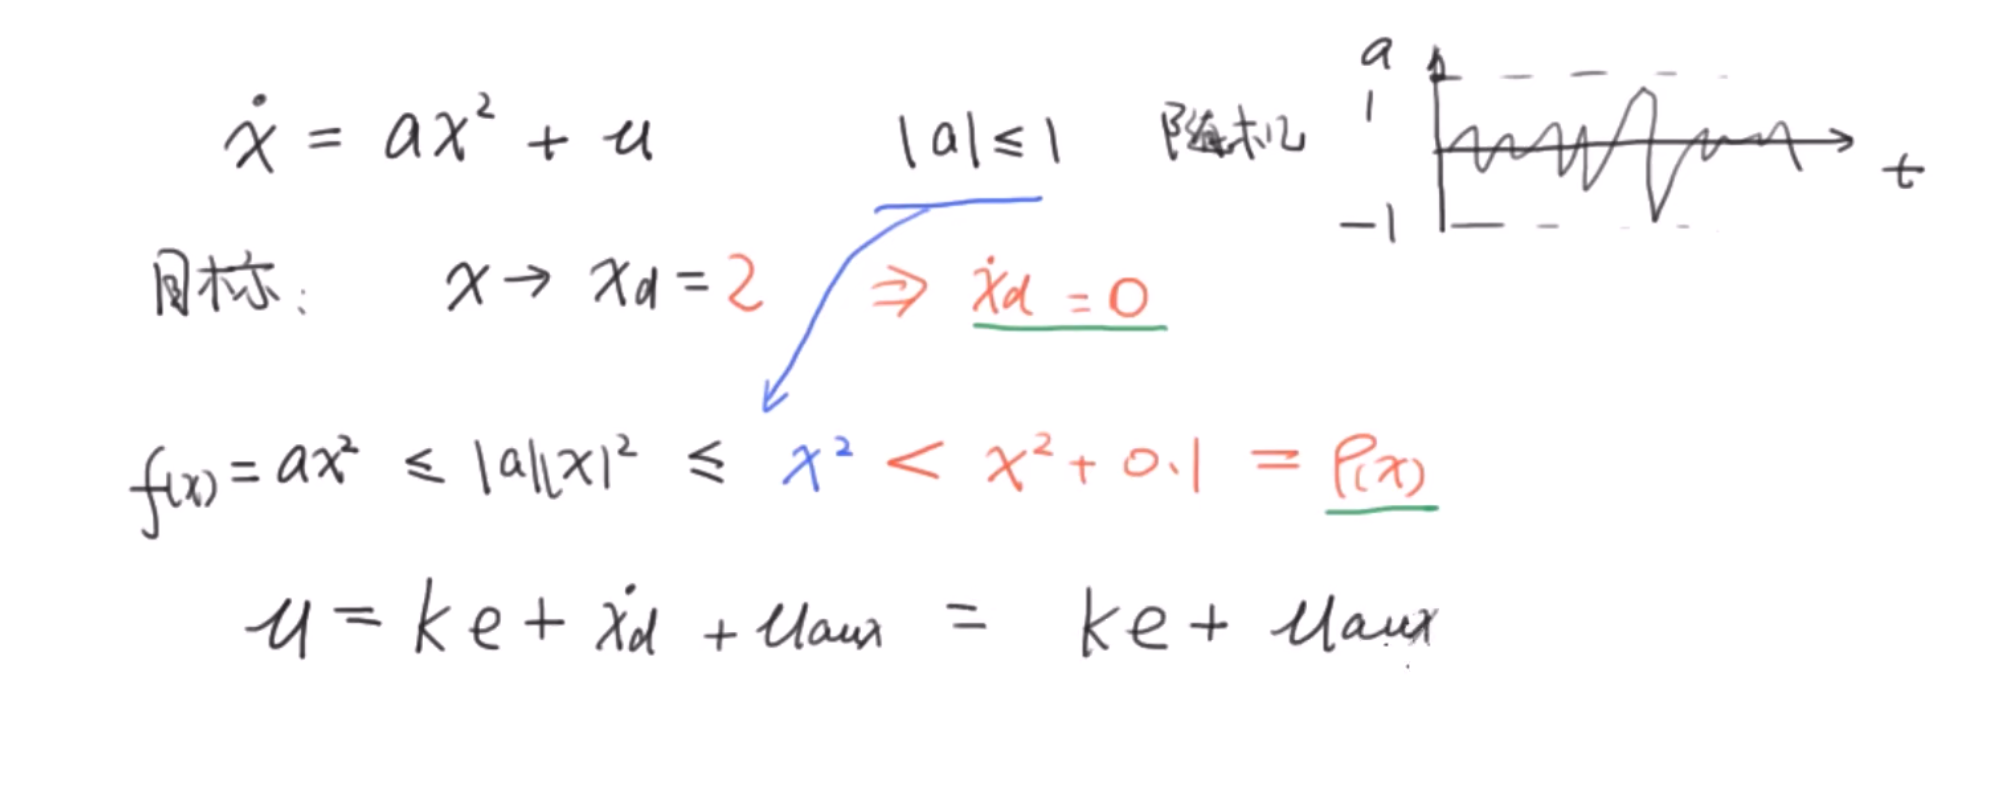 ẋ = ax² + u |a| ≤ 1 随机
a
1
-1
t
目标: x → x_d = 2 ⇒ ẋ_d = 0
f(x) = ax² ≤ |a||x|² ≤ x² < x² + 0.1 = ρ(x)
u = ke + ẋ_d + u_aux = ke + u_aux